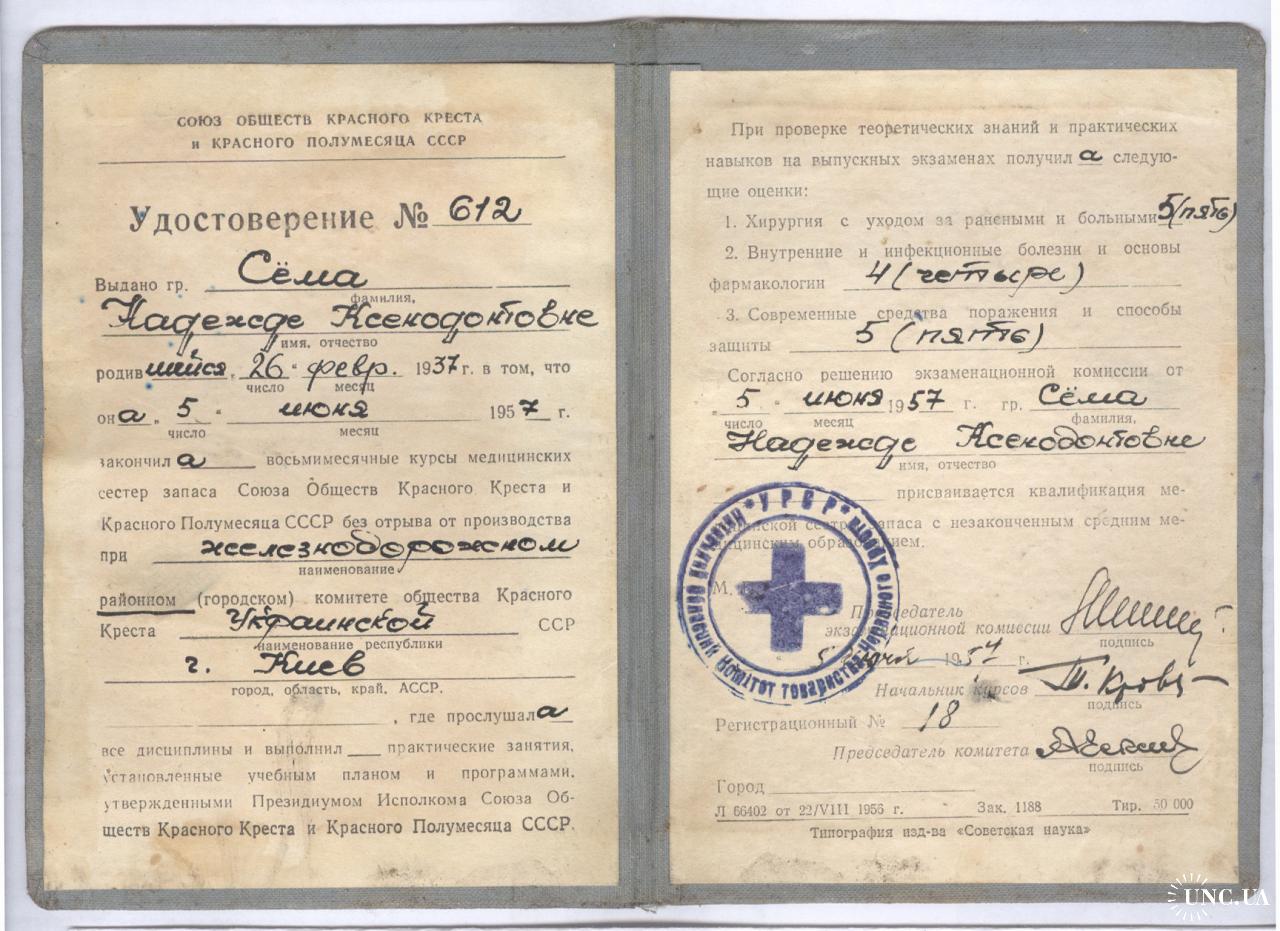 СОЮЗ ОБЩЕСТВ КРАСНОГО КРЕСТА
и КРАСНОГО ПОЛУМЕСЯЦА СССР
Удостоверение № 612
Выдано гр. Сёма
фамилия,
Надежде Ксенодонтовне
имя, отчество
родившийся „26" февр. 1937 г. в том, что
число месяц
она „5" июня 1957 г.
число месяц
закончила восьмимесячные курсы медицинских
сестер запаса Союза Обществ Красного Креста и
Красного Полумесяца СССР без отрыва от производства
при железнодорожном
наименование
районном (городском) комитете общества Красного
Креста Украинской ССР
наименование республики
г. Киев
город, область, край, АССР.
, где прослушала
все дисциплины и выполнил практические занятия,
установленные учебным планом и программами,
утвержденными Президиумом Исполкома Союза Об-
ществ Красного Креста и Красного Полумесяца СССР.
При проверке теоретических знаний и практических
навыков на выпускных экзаменах получила следую-
щие оценки:
1. Хирургия с уходом за ранеными и больными 5 (пять)
2. Внутренние и инфекционные болезни и основы
фармакологии 4 (четыре)
3. Современные средства поражения и способы
защиты 5 (пять)
Согласно решению экзаменационной комиссии от
„5" июня 1957 г. гр. Сёма
число месяц фамилия,
Надежде Ксенодонтовне
имя, отчество
присваивается квалификация ме-
дицинской сестры запаса с незаконченным средним ме-
дицинским образованием.
УРСР
комітет товариства Червоного Хреста
М.
Председатель
экзаменационной комиссии
подпись
5 1957 г.
Начальник курсов
подпись
Регистрационный № 18
Председатель комитета
подпись
Город
Л 66402 от 22/VIII 1956 г. Зак. 1188 Тир. 50 000
Типография изд-ва «Советская наука»
UNC.UA